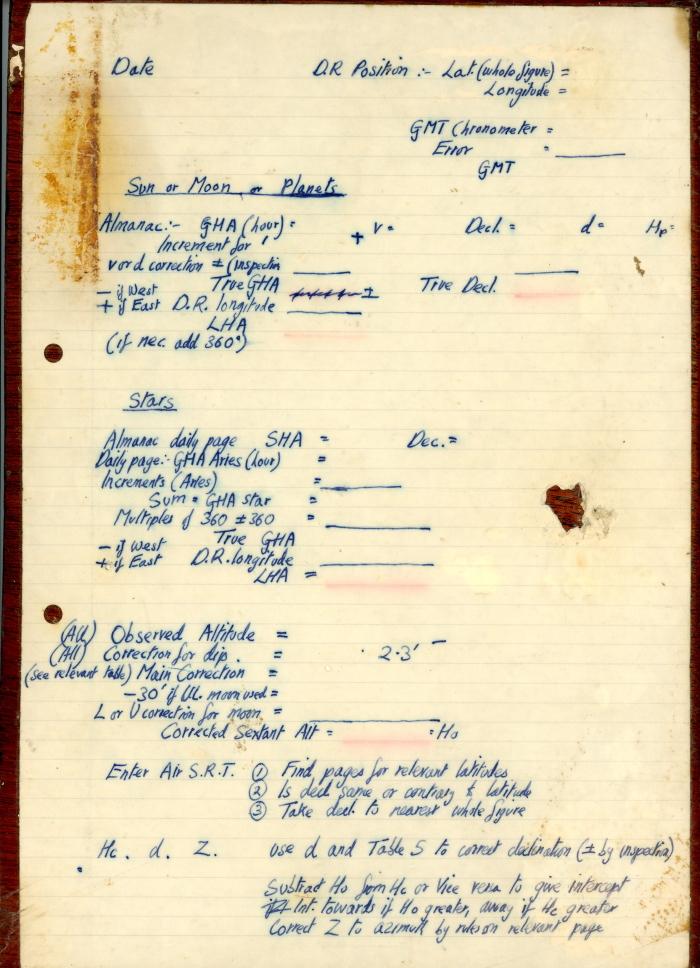 Date D.R Position :- Lat. (whole figure) =
Longitude =
GMT Chronometer =
Error =
GMT
Sun or Moon or Planets
Almanac:- GHA (hour) = + v = Decl. = d = Hp =
Increment for '
v or d correction ± (inspection
True GHA ± True Decl.
- if West
+ if East D.R. longitude
LHA
(if nec. add 360°)
Stars
Almanac daily page SHA = Dec. =
Daily page:- GHA Aries (hour) =
Increments (Aries) =
Sum = GHA star =
Multiples of 360 ± 360 =
True GHA
- if West
+ if East D.R. longitude
LHA =
(All) Observed Altitude =
(All) Correction for dip. = 2.3' -
(see relevant table) Main Correction =
- 30' if UL. moon used =
L or U correction for moon =
Corrected Sextant Alt = = Ho
Enter Air S.R.T. ① Find pages for relevant latitudes
② Is decl same or contrary to latitude
③ Take decl. to nearest whole figure
Hc. d. Z. use d and Table 5 to correct declination (± by inspection)
Subtract Ho from Hc or Vice versa to give intercept
Int. towards if Ho greater, away if Hc greater
Correct Z to azimuth by rules on relevant page